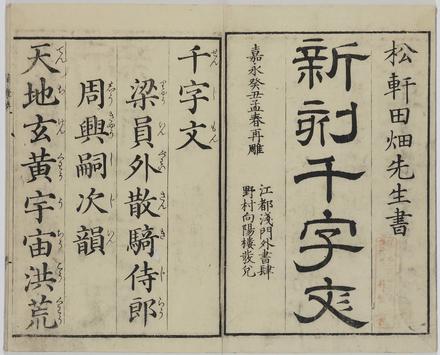 松軒田畑先生書
新刻千字文
嘉永癸丑孟春再雕
江都淺門外書肆
野村向陽樓發兌
千字文
梁員外散騎侍郎
周興嗣次韻
天地玄黄宇宙洪荒